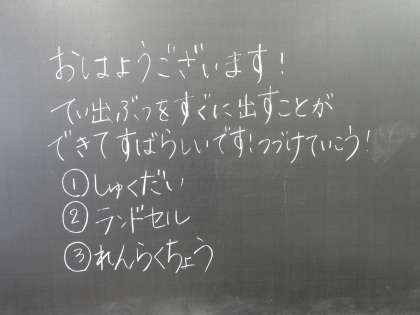 おはようございます!
てい出ぶつをすぐに出すことが
できてすばらしいです!つづけていこう!
①しゅくだい
②ランドセル
③れんらくちょう